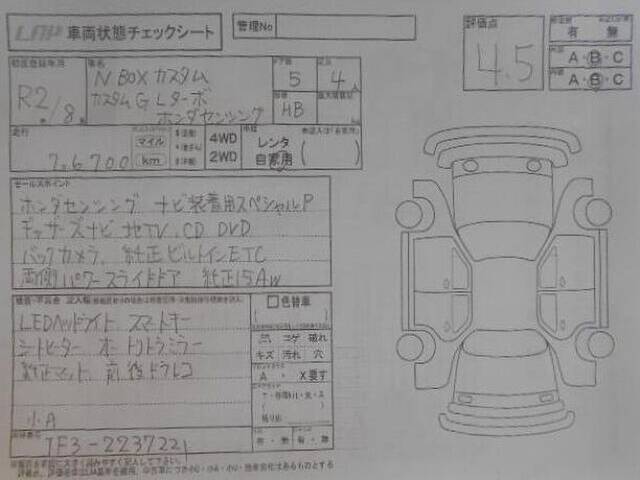 車両状態チェックシート
管理No
評価点
4.5
有 無
A・B・C
A・B・C
初度登録年月
車名
N BOX カスタム
ドア数
5
4
R2/8
カスタム G Lターボ
ホンダセンシング
HB
走行
76700
マイル
km
4WD
2WD
レンタ
自家用
セールスポイント
ホンダセンシング ナビ装着用スペシャルP
ギャザズナビ 地TV、CD DVD
バックカメラ、純正ビルトインETC
両側パワースライドドア 純正15AW
色替車
LEDヘッドライト スマートキー
シートヒーター オートリトラミラー
純正マット、前後ドラレコ
小A
コゲ 破れ
キズ 汚れ 穴
A ・ X要す
有・無
有・無
JF3-2237221